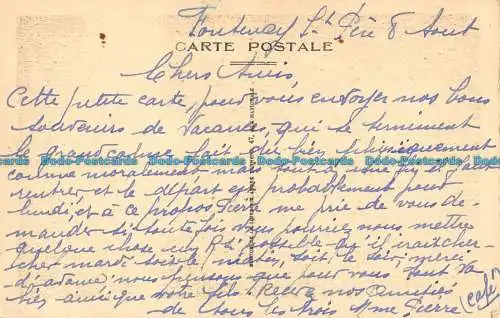 Fontenay St Père 8 Aout
CARTE POSTALE
Chers Amis,
Cette petite carte, pour vous envoyer nos bons
souvenirs de vacances, qui se terminent
le grand calme fait du bien physiquement
comme moralement mais tout a une fin et faut
rentrer et le départ est probablement pour
lundi, et à ce propos Pierre me prie de vous de-
mander si toutefois vous pourriez nous mettre
quelque chose un Pt possible qu'il irait cher-
cher mardi soir le midi, soit le soir, merci
d'avance nous pensons que pour vous tout va
bien ainsi que votre fils. Recevez nos amitiés
de tous les trois Mme Pierre
(café)
Dodo-Postcards Dodo-Postcards Dodo-Postcards Dodo-Postcards Dodo-Postcards